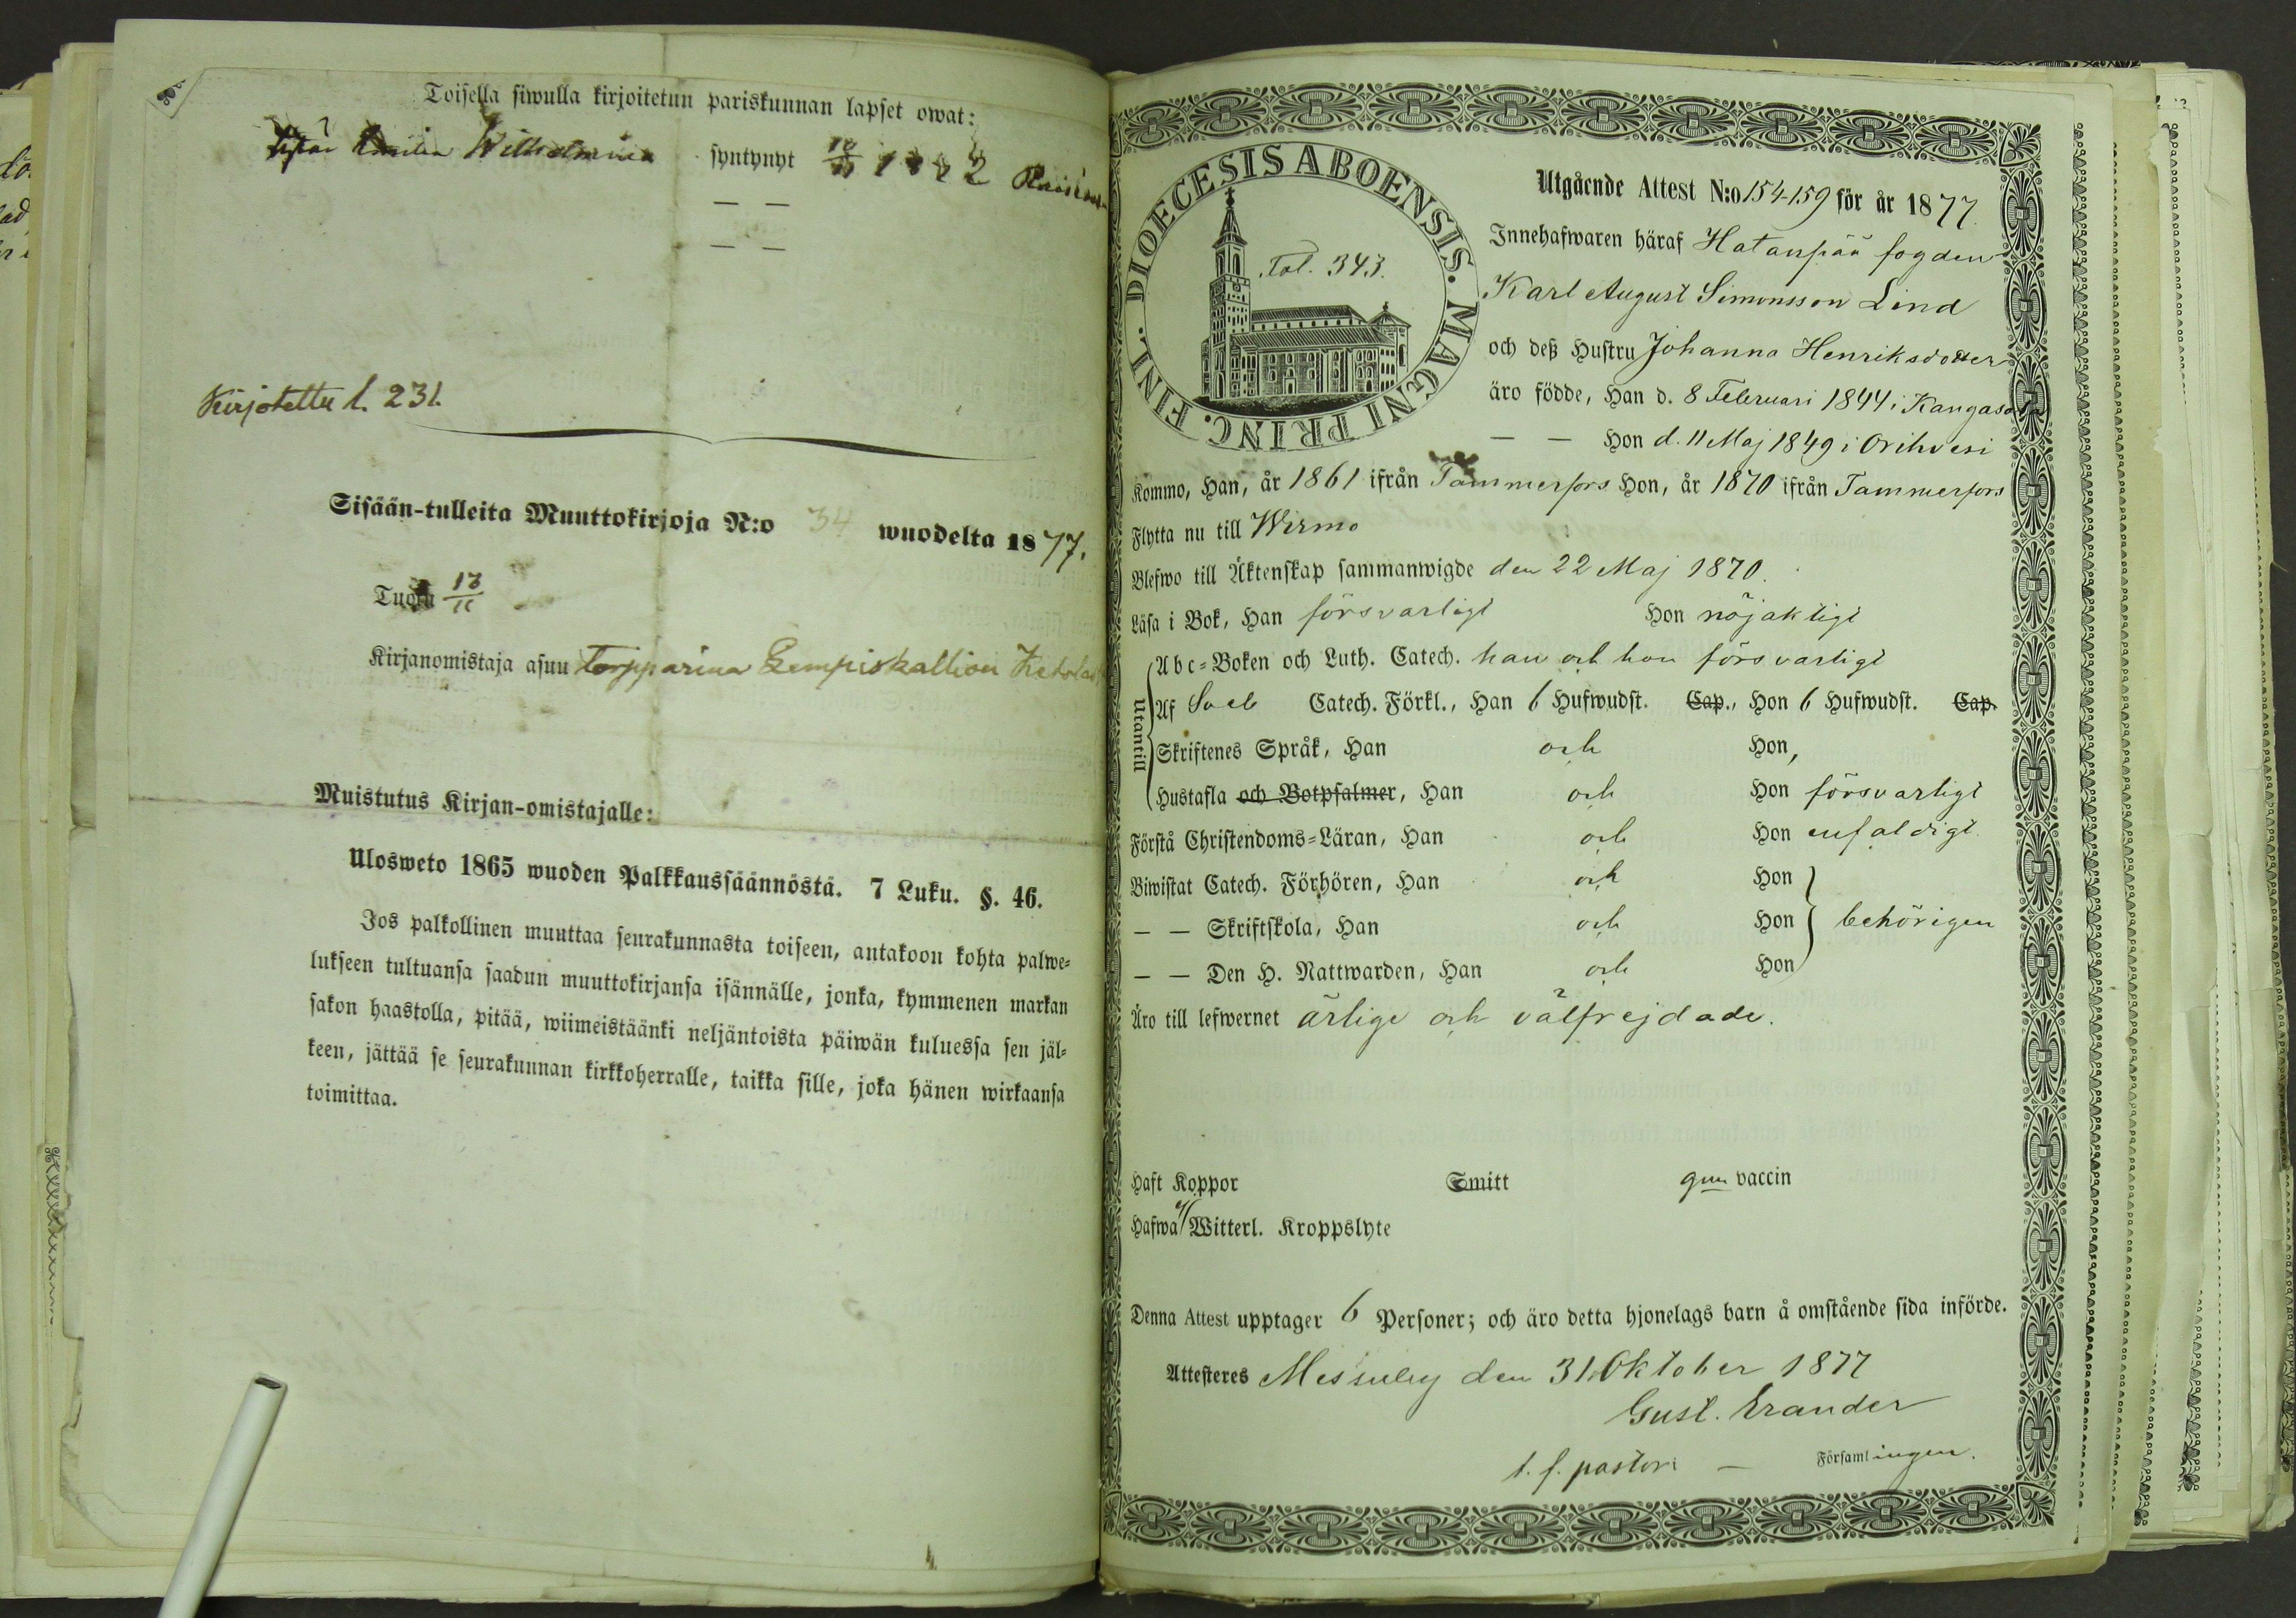 Toisella siwulla kirjoitetun pariskunnan lapset owat:
Wilhelmina syntynyt
— —
— —
Kirjotettu l. 231.
Sisään-tulleita Muuttokirjoja N:o 34 wuodelta 1877.
Tuotu
Kirjanomistaja asuu Torpparina
Muistutus Kirjan-omistajalle:
Ulosweto 1865 wuoden Palkkaussäännöstä. 7 Luku. §. 46.
Jos palkollinen muuttaa seurakunnasta toiseen, antakoon kohta palwe-
lukseen tultuansa saadun muuttokirjansa isännälle, jonka, kymmenen markan
sakon haastolla, pitää, wiimeistäänki neljäntoista päiwän kuluessa sen jäl-
keen, jättää se seurakunnan kirkkoherralle, taikka sille, joka hänen wirkaansa
toimittaa.
DIOECESIS ABOENSIS. MAGNI PRINC. FINL.
Fol. 343.
Utgående Attest N:o 154-159 för år 1877.
Innehafwaren häraf Hatanpää fogden
Karl August Simonsson Lind
och deß Hustru Johanna Henriksdotter
äro födde, Han d. 8 Februari 1844 i Kangasala
— — Hon d. 11 Maj 1849 i Orihvesi
Kommo, Han, år 1861 ifrån Tammerfors Hon, år 1870 ifrån Tammerfors
Flytta nu till Wirmo
Blefwo till Äktenskap sammanwigde den 22 Maj 1870.
Läsa i Bok, Han försvarligt Hon nöjaktigt
Utantill
Abc-Boken och Luth. Catech. han och hon försvarligt
Af Catech. Förkl., Han 6 Hufwudst. Cap., Hon 6 Hufwudst. Cap.
Skriftenes Språk, Han och Hon,
Hustafla och Botpsalmer, Han och Hon försvarligt
Förstå Christendoms-Läran, Han och Hon enfaldigt.
Biwistat Catech. Förhören, Han och Hon
— — Skriftskola, Han och Hon behörigen
— — Den H. Nattwarden, Han och Hon
Äro till lefwernet ärlige och välfrejdade.
Haft Koppor Smitt gm vaccin
Hafwa Witterl. Kroppslyte
Denna Attest upptager 6 Personer; och äro detta hjonelags barn å omstående sida införde.
Attesteres Messuby den 31 Oktober 1877
Gust. Erander
t. f. pastor i — Församlingen.